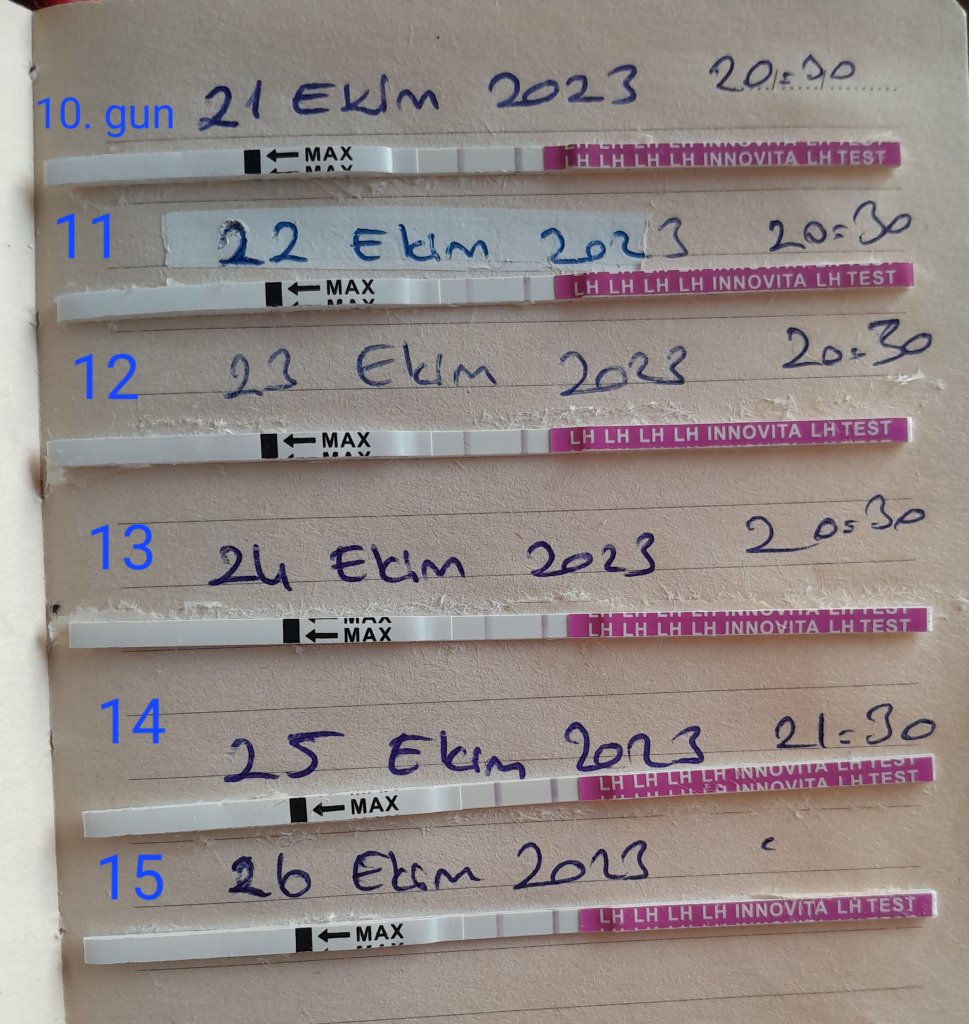 10. gun 21 Ekim 2023 20:30
MAX
MAX
LH TEST
LH LH LH LH INNOVITA LH TEST
11 22 Ekim 2023 20:30
MAX
MAX
LH LH LH LH INNOVITA LH TEST
12 23 Ekim 2023 20:30
MAX
MAX
LH LH LH LH INNOVITA LH TEST
13 24 Ekim 2023 20:30
MAX
MAX
LH LH LH LH INNOVITA LH TEST
LH LH LH LH INNOVITA LH TEST
14 25 Ekim 2023 21:30
MAX
LH LH LH LH INNOVITA LH TEST
LH LH LH LH INNOVITA LH TEST
15 26 Ekim 2023
MAX
MAX
LH LH LH LH INNOVITA LH TEST